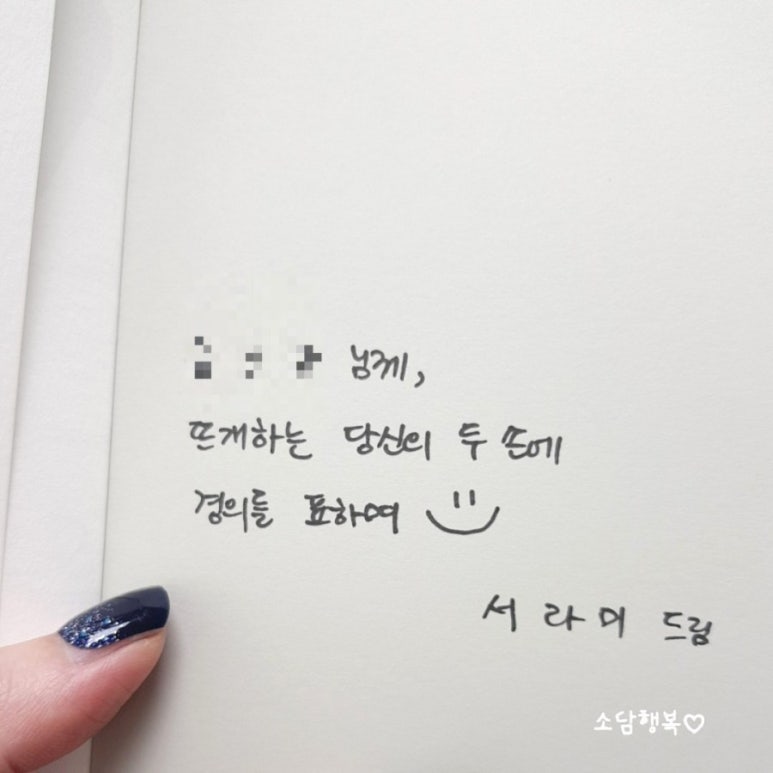 님께,
뜨개하는 당신의 두 손에
경의를 표하여
서 라 미 드림
소담행복♡